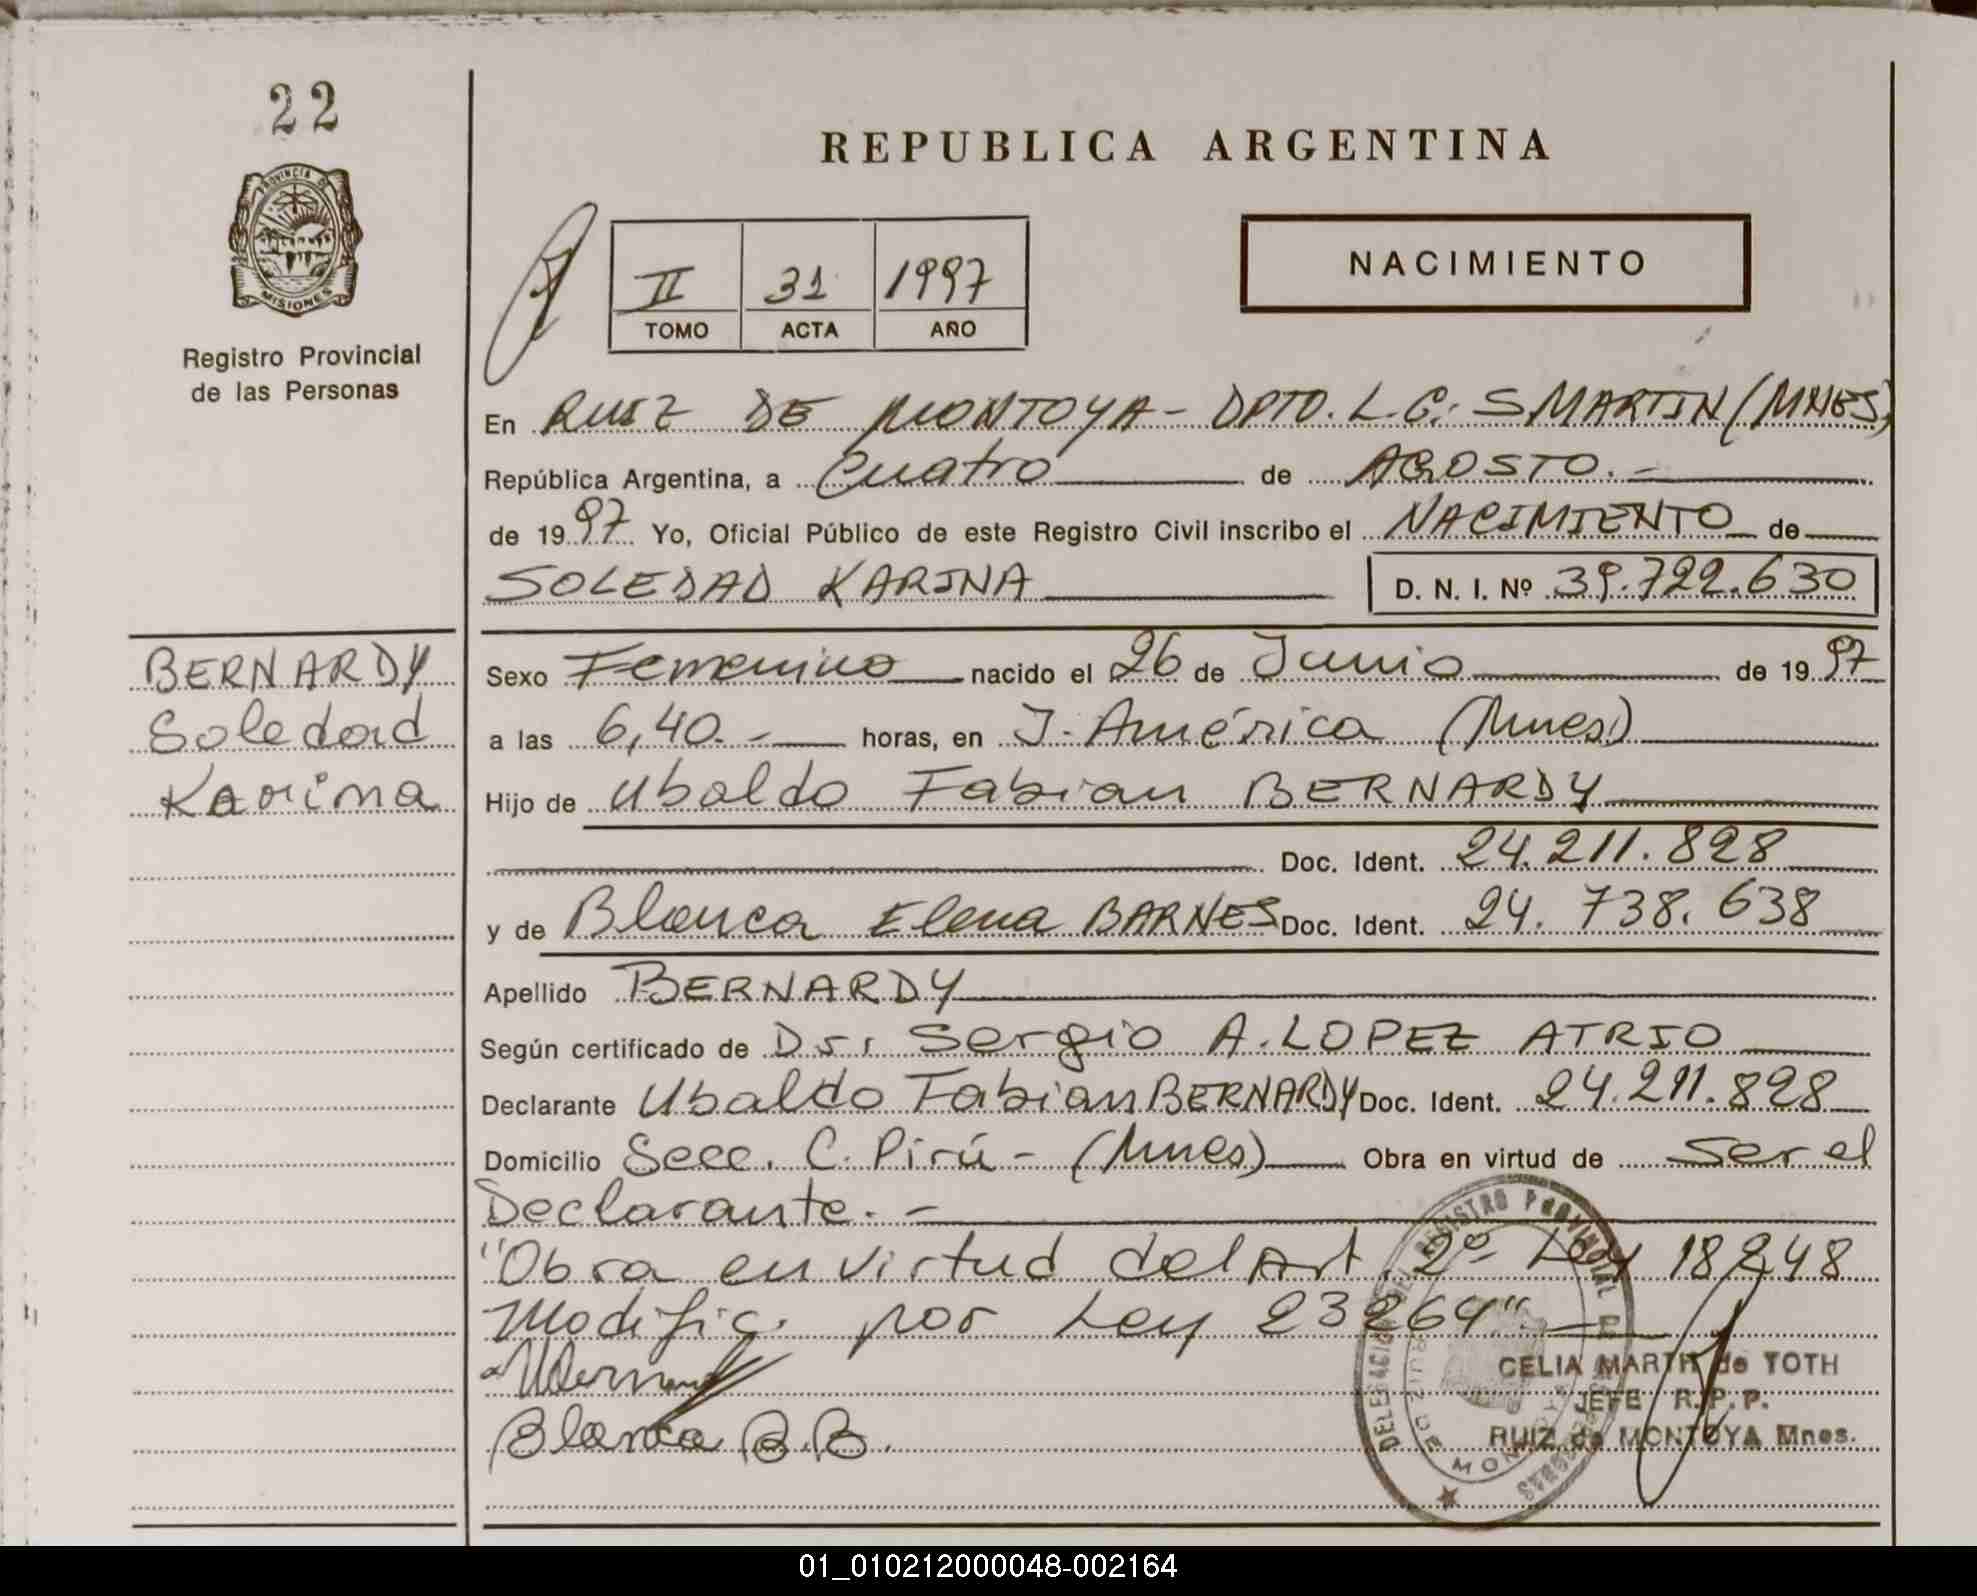 22
PROVINCIA DE
MISIONES
Registro Provincial
de las Personas
BERNARDY
Soledad
Karina
REPUBLICA ARGENTINA
II 31 1997
TOMO ACTA AÑO
NACIMIENTO
En RUIZ DE MONTOYA - DPTO. L.G. S MARTIN (MNES)
República Argentina, a Cuatro de AGOSTO.-
de 1997 Yo, Oficial Público de este Registro Civil inscribo el NACIMIENTO de
SOLEDAD KARINA D. N. I. Nº 39.722.630
Sexo Femenino nacido el 26 de Junio de 1997
a las 6,40.- horas, en J. América (Mnes)
Hijo de Ubaldo Fabian BERNARDY
Doc. Ident. 24.211.828
y de Blanca Elena BARNES Doc. Ident. 24.738.638
Apellido BERNARDY
Según certificado de Dr. Sergio A. LOPEZ ATRIO
Declarante Ubaldo Fabian BERNARDY Doc. Ident. 24.211.828
Domicilio Secc. C. Pirú - (Mnes) Obra en virtud de ser el
Declarante.-
"Obra en virtud del Art. 2º Ley 18248
Modific. por Ley 23264"
Blanca B.B.
DELEGACION DEL REGISTRO PROVINCIAL DE LAS PERSONAS
RUIZ DE MONTOYA
CELIA MARTH de TOTH
JEFE R.P.P.
RUIZ de MONTOYA Mnes.
01_010212000048-002164